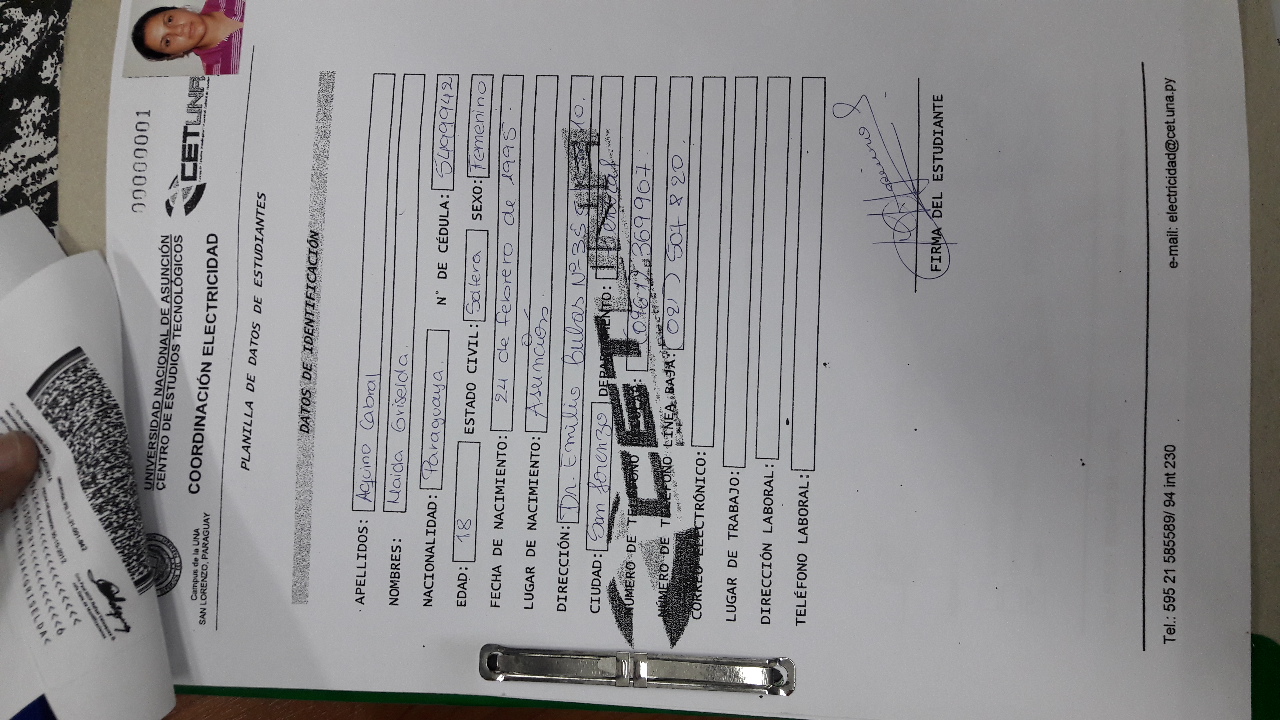 00000001
UNIVERSIDAD NACIONAL DE ASUNCIÓN
CENTRO DE ESTUDIOS TECNOLÓGICOS
CETUNA
Campus de la UNA
SAN LORENZO, PARAGUAY
COORDINACIÓN ELECTRICIDAD
PLANILLA DE DATOS DE ESTUDIANTES
DATOS DE IDENTIFICACIÓN
APELLIDOS: Aquino Cabral
NOMBRES: Maida Griselda.
NACIONALIDAD: Paraguaya. N° DE CÉDULA: 5499942
EDAD: 18 ESTADO CIVIL: Soltera SEXO: Femenino
FECHA DE NACIMIENTO: 24 de febrero de 1995.
LUGAR DE NACIMIENTO: Asunción.
DIRECCIÓN: Dr. Emilio Nº
CIUDAD: San Lorenzo DEPARTAMENTO: Central
NÚMERO DE TELÉFONO CELULAR: 369907.
NÚMERO DE TELÉFONO LÍNEA BAJA: (021) 507820.
CORREO ELECTRÓNICO:
LUGAR DE TRABAJO:
DIRECCIÓN LABORAL:
TELÉFONO LABORAL:
FIRMA DEL ESTUDIANTE
Tel.: 595 21 585589/ 94 int 230 e-mail: electricidad@cet.una.py